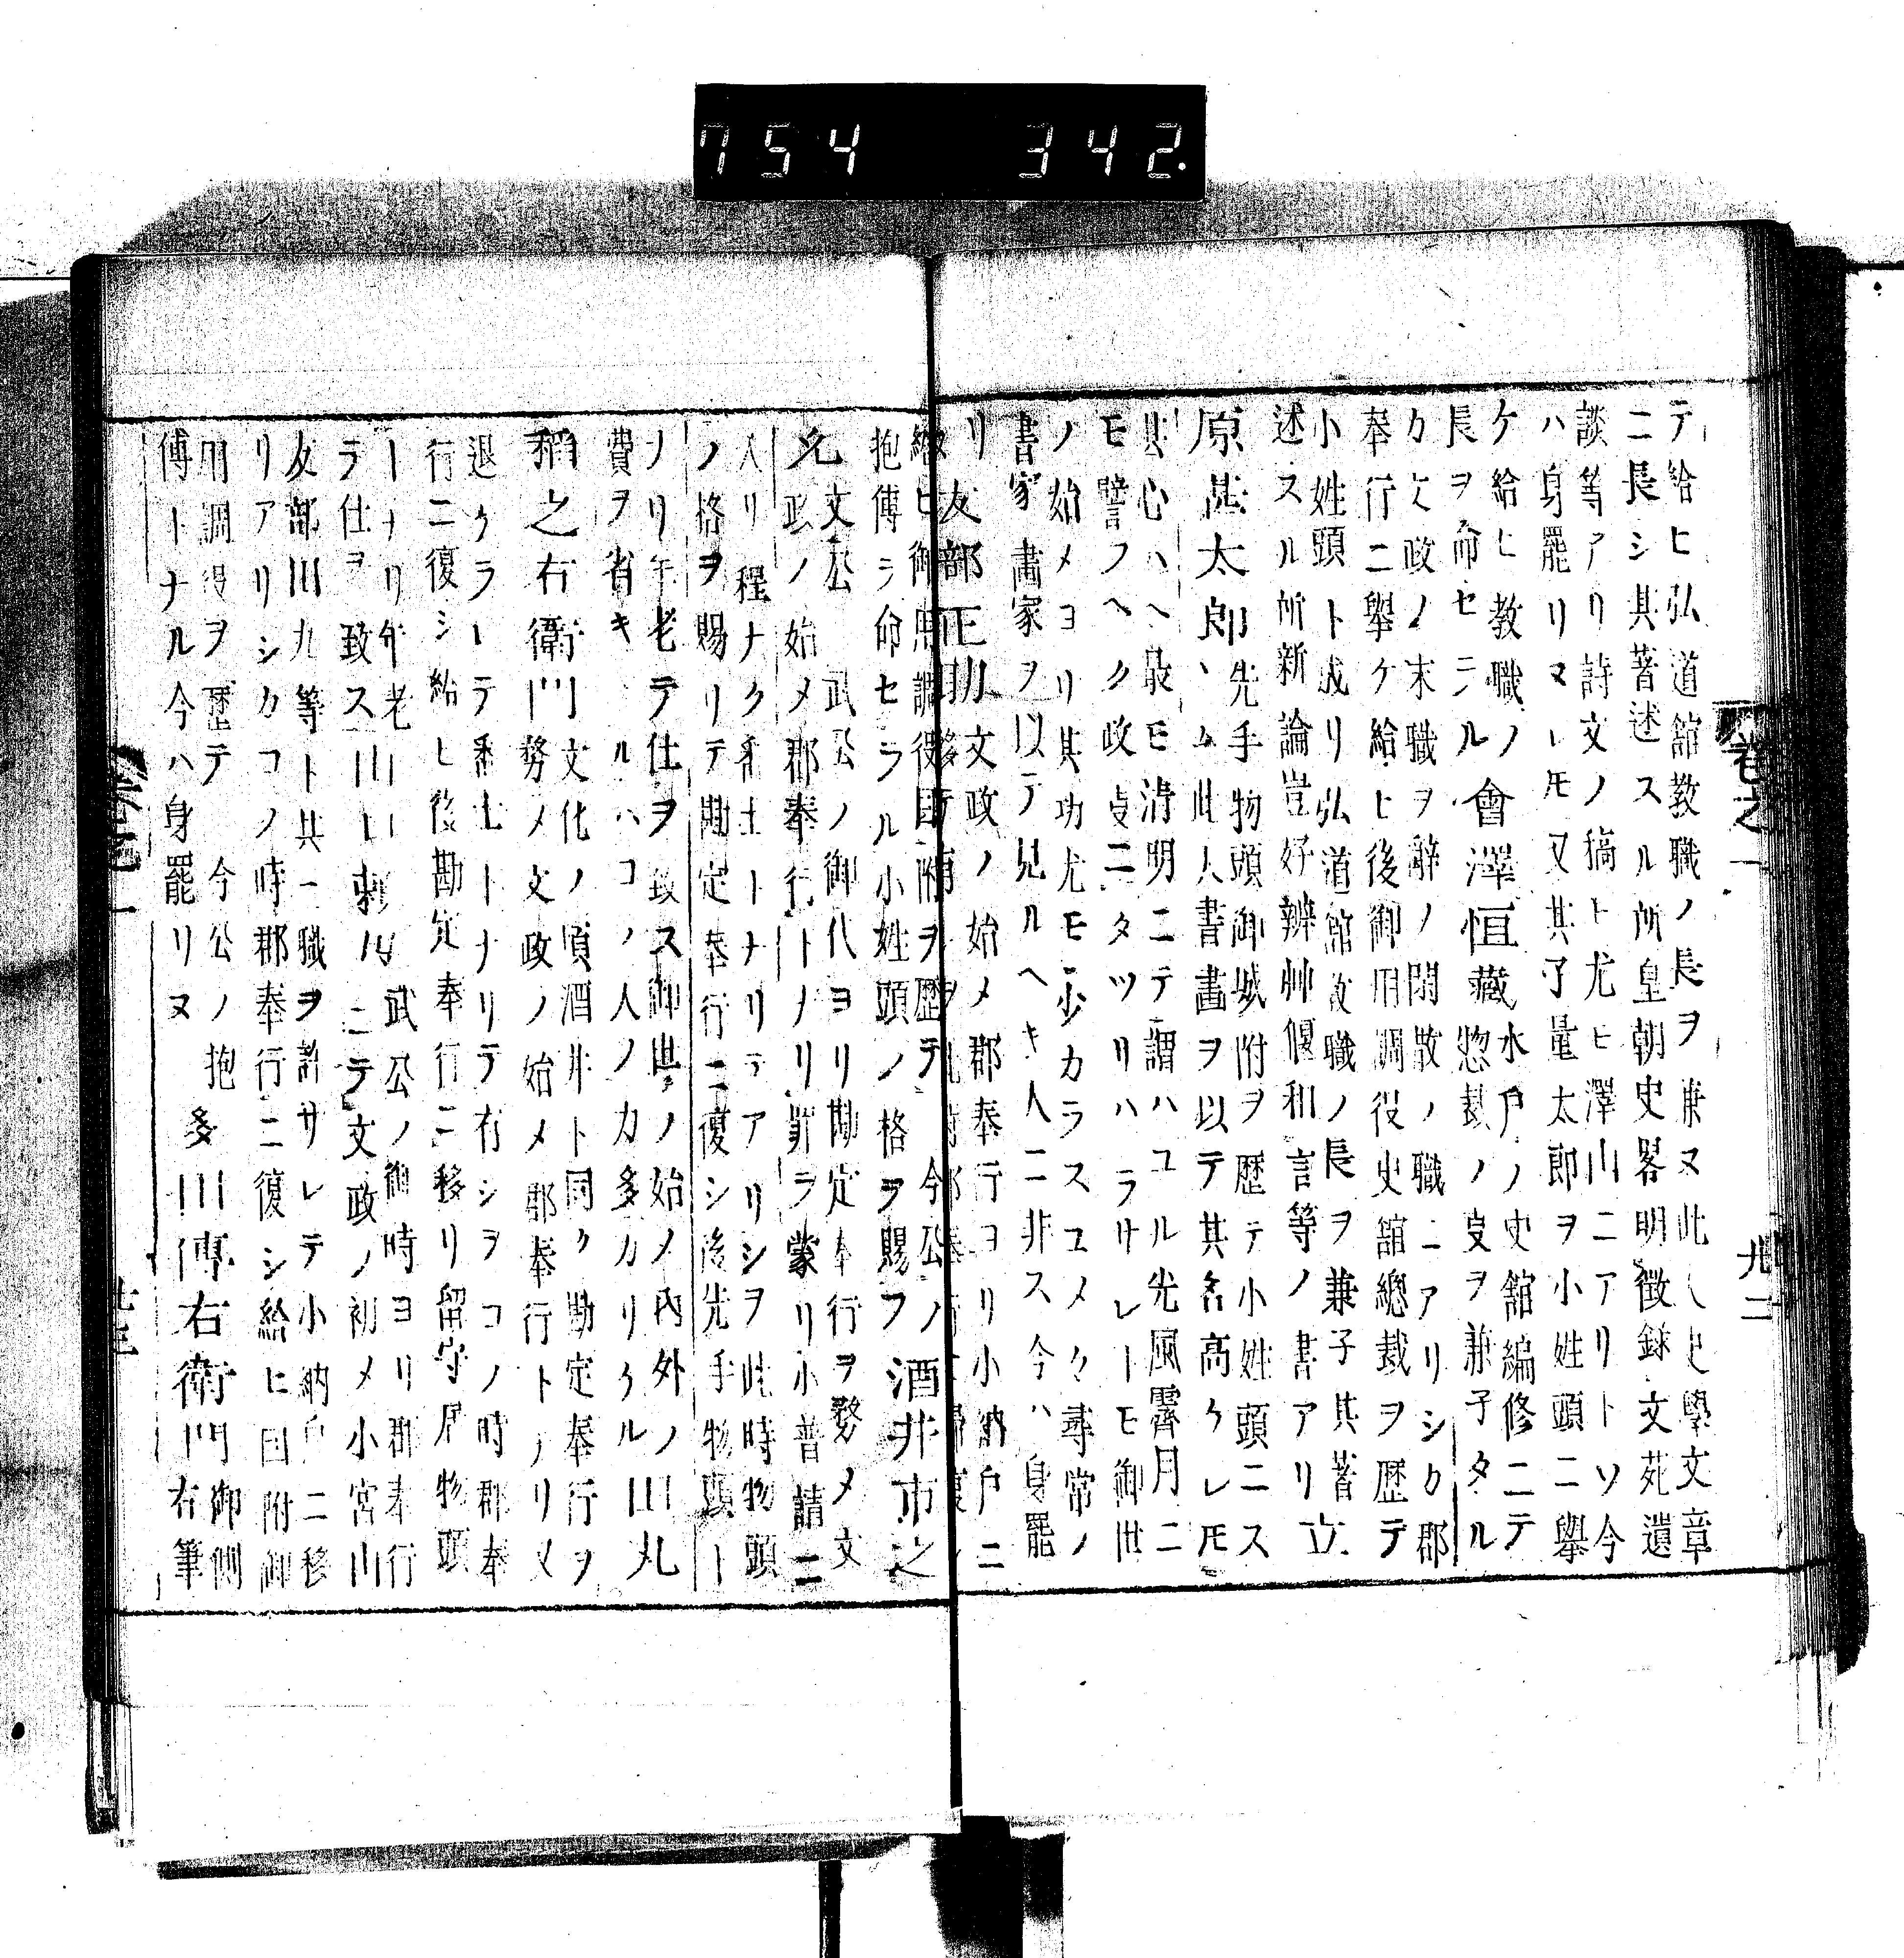 754 342.
テ給ヒ弘道舘敎職ノ長ヲ兼ヌ此人史學文章
ニ長シ其著述スル所皇朝史畧明徴錄文苑遺
談等アリ詩文ノ稿ト尤ヒ澤山ニアリトソ今
ハ身罷リヌレ𪜈又其子量太郎ヲ小姓頭ニ擧
ケ給ヒ敎職ノ會澤恒藏水戶ノ史舘編修ニテ
長ヲ命セラル惣裁ノ叓ヲ兼子タル
カ文政ノ末職ヲ辭ノ閑散ノ職ニアリシカ郡
奉行ニ擧ケ給ヒ後御用調役史舘總裁ヲ歷テ
小姓頭ト成リ弘道舘敎職ノ長ヲ兼子其著
述スル所新論豈好辨艸偃和言等ノ書アリ立
原甚太郎先手物頭御城附ヲ歷テ小姓頭ニス
ヽム此人書畫ヲ以テ其名高ケレ𪜈
其心ハヘ最モ淸明ニテ謂ハユル光風霽月ニ
モ譬フヘク政叓ニタツサハラサレーモ御世
ノ始メヨリ其功尤モ少カラスユメ〳〵尋常ノ
書家畫家ヲ以テ見ルヘキ人ニ非ス今ハ身罷
リ友部正助文政ノ始メ郡奉行ヨリ小納戶ニ
總ヒ御用調役田附ヲ歷テ今公ノ酒井市之
抱傅ラ命セラル小姓頭ノ格ヲ賜フ
允文公武公ノ御代ヨリ勘定奉行ヲ務メ文
政ノ始メ郡奉行トノリ罪ラ蒙リ小普請ニ
入リ程ナク番士トナリテアリシヲ此時物頭
ノ格ヲ賜リテ勘定奉行ニ復シ後先手物頭ト
ノリ年老テ仕ヲ致ス御世ノ始ノ內外ノ
費ヲ省キルハコノ人ノ力多カリケル川九
稻之右衛門文化ノ頃酒井ト同ク勘定奉行ヲ
務メ文政ノ始メ郡奉行トノリ又
退ケラレーテ番士トナリテ有シヲコノ時郡奉
行ニ復シ給ヒ後勘定奉行ニ移リ留守居物頭
ーナリ年老武公ノ御時ヨリ郡奉行
テ仕ヲ致スニテ文政ノ初メ小宮山
友部川九等ト其ニ職ヲ許サレテ小納戶ニ移
リアリシカコノ時郡奉行ニ復シ給ヒ田附御
用調役ヲ歷テ今公ノ抱多川傳右衛門御側
傅トナル今ハ身罷リヌ右筆
卷之一
九二